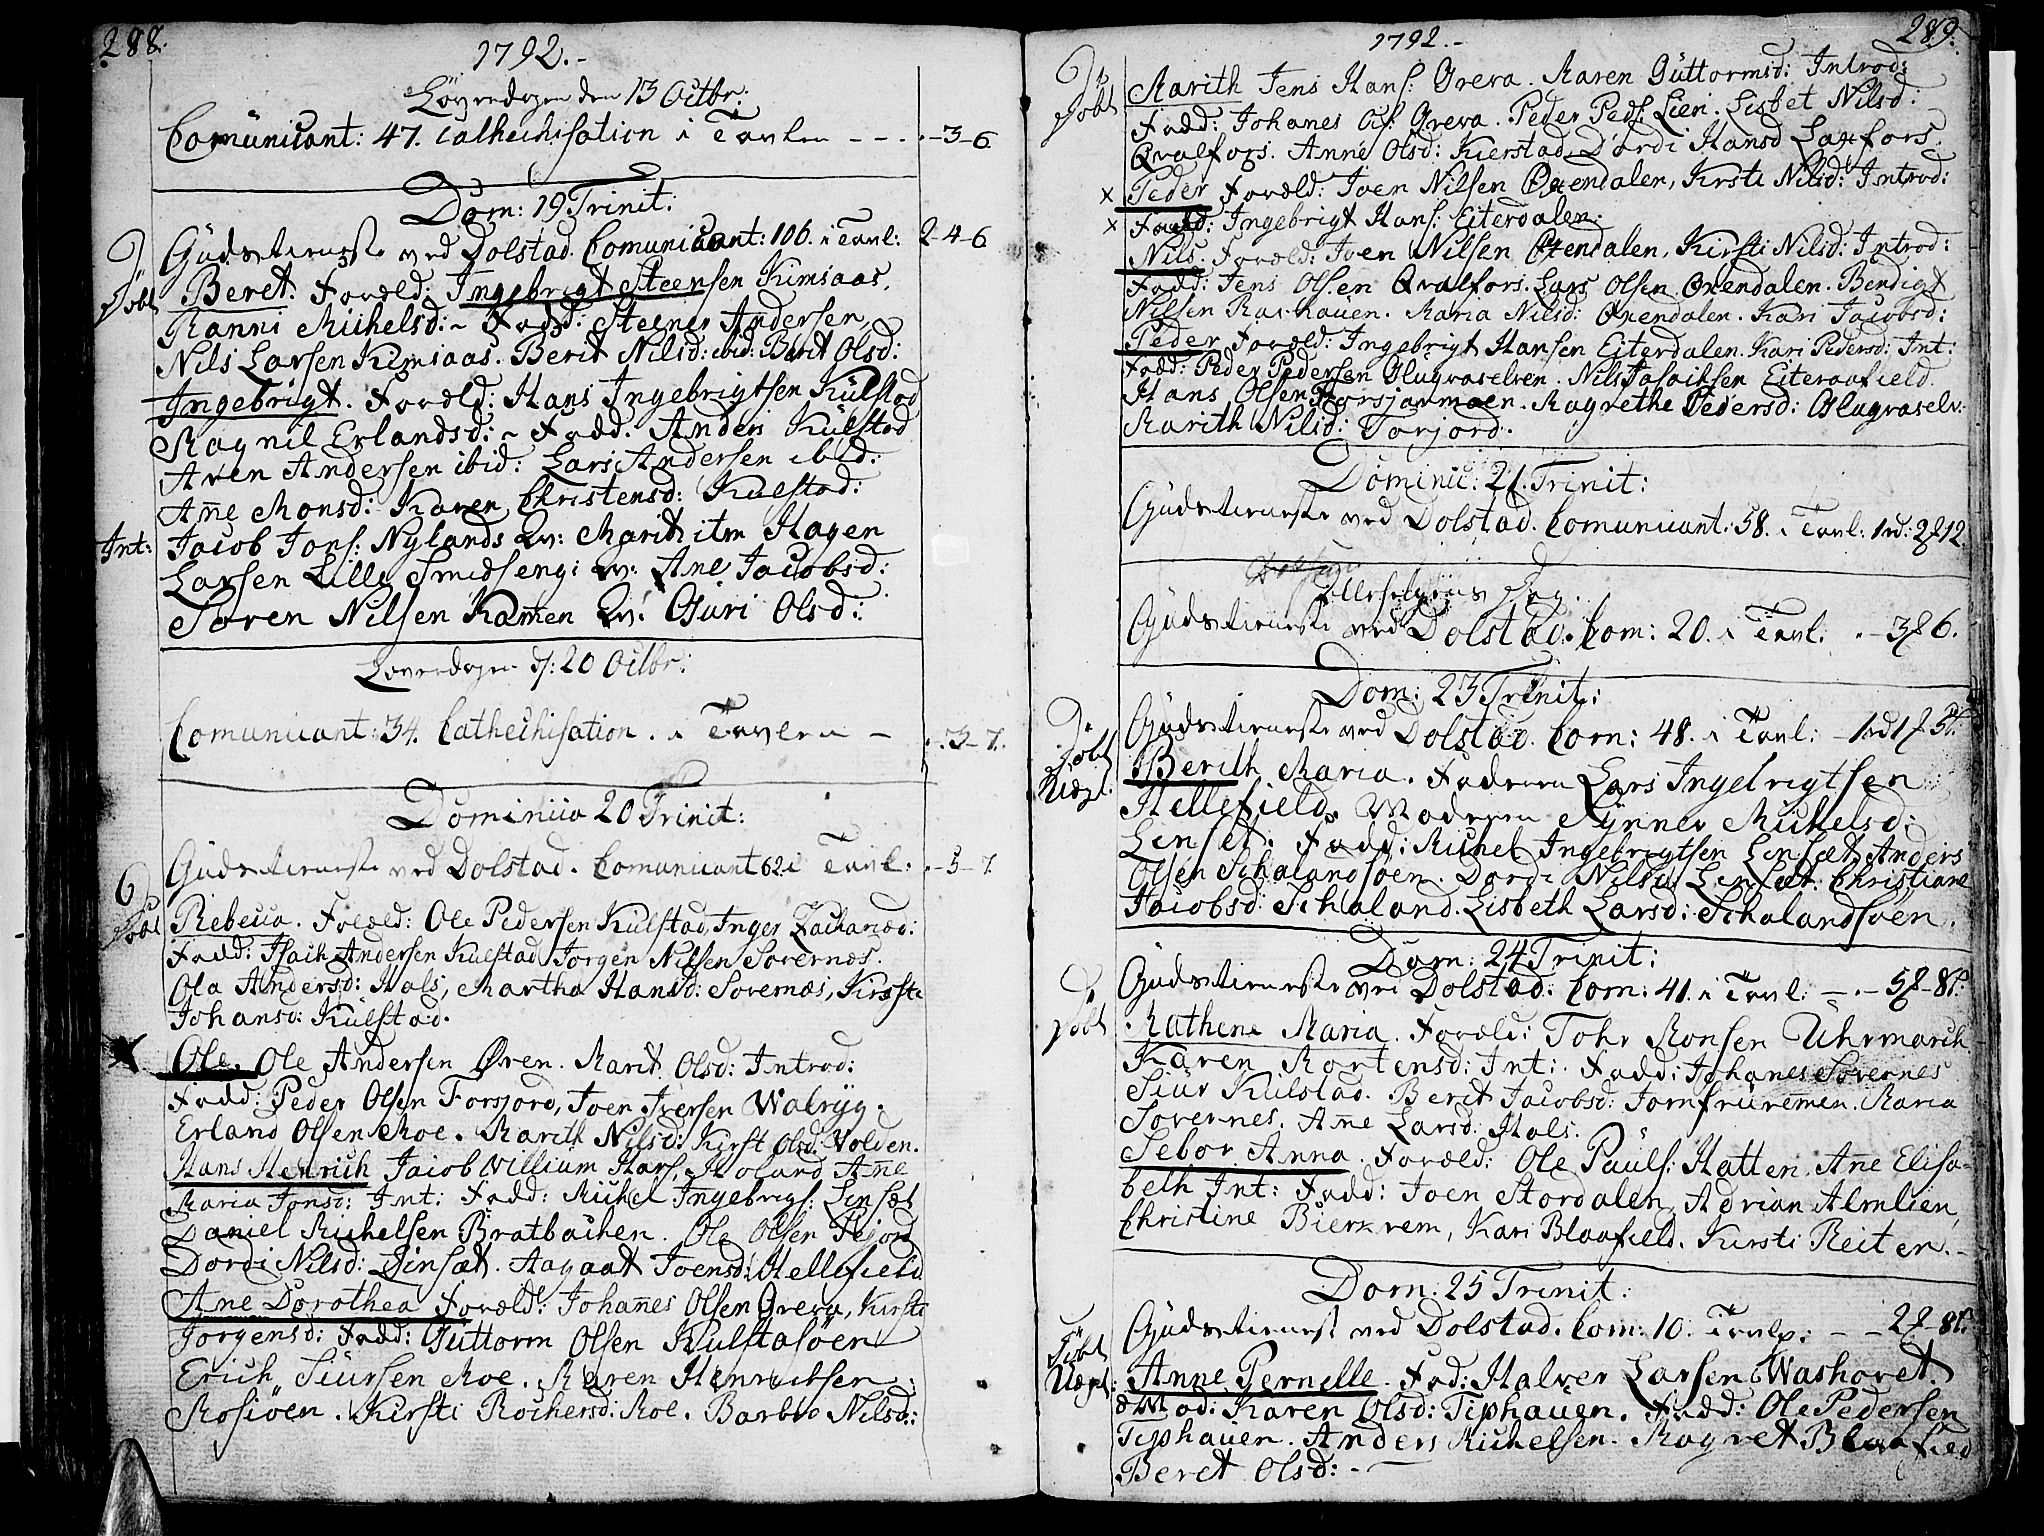 288.
1792.-
Løverdagen den 13 Octbr:
Comunicant: 47. Cathechisation i Tavlen - - - . -3-6
Dom: 19 Trinit:
Gudstieneste ved Dolstad. Comunicant: 106. i Tavl: 2-4-6
Døbt
Beret. Foræld: Ingebrigt Steensen Kimsaas,
Ranni Michelsd: ~ Fadd: Steener Andersen,
Nils Larsen Kimsaas. Berit Nilsd: ibid: Berit Olsd:
Ingebrigt. Foræld: Hans Ingebrigtsen Kulstad
Ragnil Erlandsd: ~ Fadd. Anders Kulstad
Aren Andersen ibid: Lars Andersen ibid:
Anne Monsd: Karen Christensd: Kulstad:
Int: Jacob Jons: Nylands Qv: Marit itm Hagen
Larsen Lille Smedseng: Qv: Ane Jacobsd:
Søren Nilsen Ramen Qv: Guri Olsd:
Løverdagen d: 20 Octbr:
Comunicant: 34. Cathechisation . i Tavlen - . -3-7.
Dominica 20 Trinit:
Gudstieneste ved Dolstad. Comunicant 62 i Tavl: . -5-7.
6
Døbt
Rebecca. Foræld: Ole Pedersen Kulstad, Inger Zachariæd:
Fadd: Isach Andersen Kulstad, Jorgen Nilsen Sovernæs.
Ola Andersd: Hals, Martha Hansd: Sovernæs, Kirste
Johansd: Kulstad.
Ole. Ole Andersen Øren. Marit Olsd: Introd:
Fadd: Peder Olsen Forsjord, Joen Iversen Walryg.
Erland Olsen Moe. Marith Nilsd: Kirst Olsd: Volden.
Hans Henrich Jacob Willium Hars: Holand, Ane
Maria Jonsd: Int: Fadd: Michel Ingebrigs: Linsæt
Daniel Michelsen Bratbachen. Ole Olsen
Dordi Nilsd: Linsæt. Aagaat Joensd: Hellefield
Ane Dorothea Foræld: Johannes Olsen Greva, Kirste
Jorgensd: Fadd: Guttorm Olsen Kulstasøen
Erich Siursen Moe. Maren Henrichsen
Mosiøen. Kirsti Rochersd: Moe. Barbro Nilsd:
1792.-
289.
Døbt
Marith Jens Hans: Greva. Maren Guttormsd: Introd:
Fadd: Johanes Ols: Greva. Peder Peds: Lien. Lisbet Nilsd:
Qvalfors. Anne Olsd: Kierstad, Dordi Hansd Laxfors.
x Peder Foræld: Joen Nilsen Øxendalen, Kirste Nilsd: Introd:
x Fadd: Ingebrigt Hans: Eiterdalen.
Nils. Foræld: Joen Nilsen Øxendalen, Kirsti Nilsd: Introd:
Fadd: Jens Olsen Qvalfors. Lars Olsen Øxendalen. Bendigt
Nilsen Raschauen. Maria Nilsd: Øxendalen. Kari Jacobsd:
Peder Foræld: Ingebrigt Hansen Eiterdalen. Kari Pedersd: Int:
Fadd: Peder Pedersen Glugvaselven. Nils Isachsen Eiteraafield.
Hans Olsen Forsjarmoen. Magrethe Pedersd: Glugvaselv:
Marith Nilsd: Farjord.
Dominic: 21. Trinit:
Gudstieneste ved Dolstad. Comunicant: 58. i Tavl: 1rd: 2 12.
Allehelgens Dag.
Gudstieneste ved Dolstad. Com: 20. i Tavl: . -3 6.
Dom: 23 Trinit:
Gudstieneste ved Dolstad. Com: 48. i Tavl: -1rd 1 5s.
Døbt
Uægt.
Berith Maria. Faderen Lars Ingebrigtsen
Hellefield, Moderen Rynner Michelsd:
Linset. Fadd: Michel Ingebrigtsen Linsæt, Anders
Olsen Schalandsøen. Dordi Nilsd Linsæt. Christiane
Jacobsd: Schaland. Lisbeth Larsd: Schalandsøen.
Dom: 24 Trinit:
Gudstieneste ved Dolstad. Com: 41. i Tavl: - . - 5 -8s:
Døbt
Kathene Maria. Foræld: Tohr Monsen Uhrmarch
Karen Mortensd: Int: Fadd: Johanes Sovernes
Siur Kulstad. Berit Jacobsd: Jomfruremen. Maria
Sovernes. Ane Larsd: Hals.
Sebor Anna. Foræld: Ole Pauls: Hatten. Ane Elisa-
beth Int: Fadd: Joen Stordalen, Adrian Almlien,
Christine Bierkrem, Kari Blaafield. Kirsti Reiten.-
Dom: 25 Trinit:
Gudstieneste ved Dolstad. Com: 10. Tavl: - - 2 -8s.
Døbt
Uægt:
Anne Pernelle. Fad: Halver Larsen Washovet.
Mod: Karen Olsd: Tiphauen. Fadd: Ole Pedersen
Tiphauen. Anders Michelsen. Magret Blaafield
Beret Olsd: -